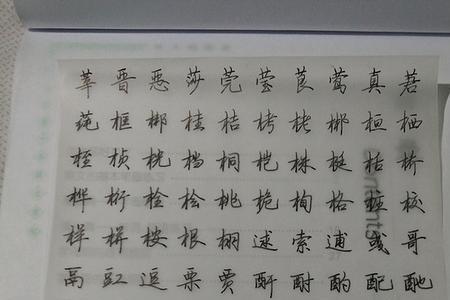 莘 晋 恶 莎 莞 莹 莨 莺 真 莙
莼 框 梆 桂 桔 栲 栳 郴 桓 栖
桎 桢 桄 档 桐 桤 株 梃 栝 桥
桦 桁 栓 桧 桃 桅 栒 格 桩 校
样 栟 桉 根 栩 逑 索 逋 彧 哥
鬲 豇 逗 栗 贾 酐 酎 酌 配 酏